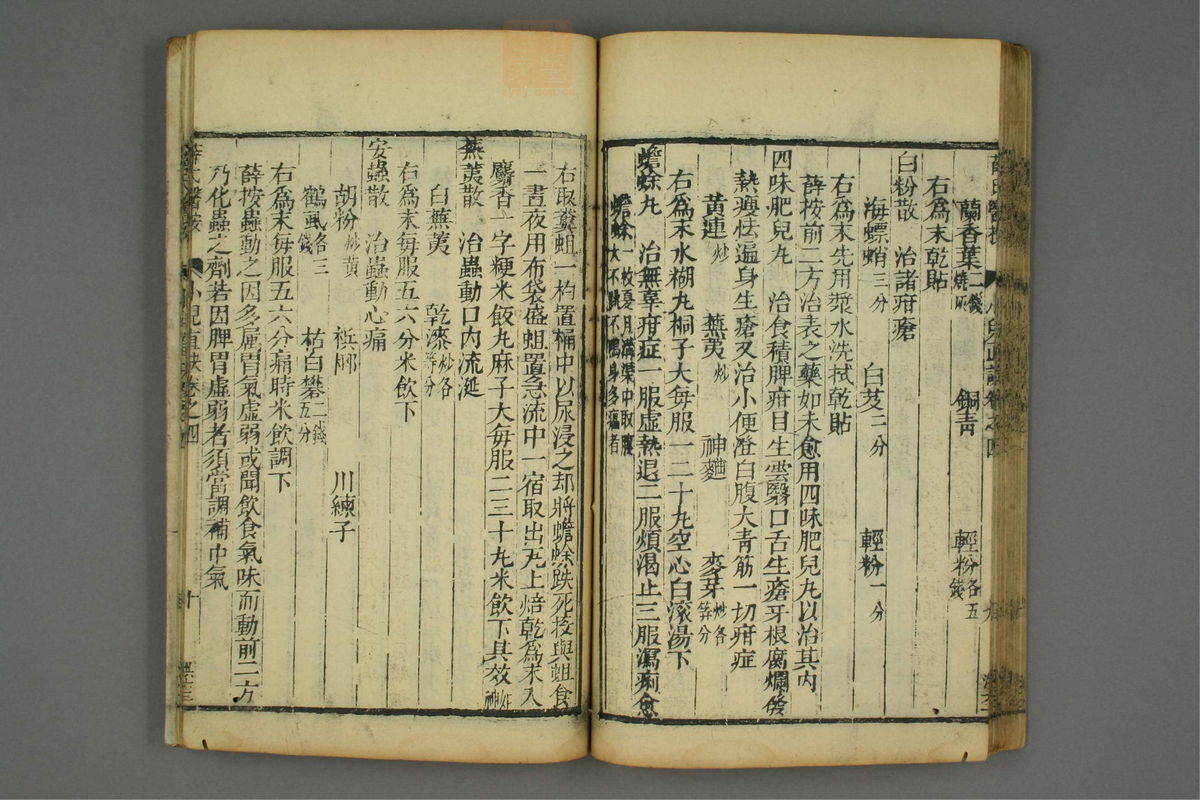 蘭香葉二錢燒灰　銅青　輕粉各五錢
右為末乾貼
白粉散　治諸疳瘡
海螵蛸三分　白芨二分　輕粉一分
右為末先用漿水洗拭乾貼
薛按前二方治表之藥如未愈用四味肥兒丸以治其內
四味肥兒丸　治食積脾疳目生雲翳口舌生瘡牙根腐爛發
熱瘦怯遍身生瘡又治小便澄白腹大青筋一切疳症
黃連炒　蕪荑炒　神麯　麥芽炒各等分
右為末水糊丸桐子大每服一二十丸空心白滾湯下
蟾蜍丸　治無辜疳症一服虛熱退二服煩渴止三服瀉痢愈
蟾蜍一枚夏月溝渠中取腹大不跳不鳴身多癩者
右取糞蛆一杓置桶中以尿浸之却將蟾蜍跌死投與蛆食
一晝夜用布袋盛蛆置急流中一宿取出瓦上焙乾為末入
麝香一字粳米飯丸麻子大每服二三十丸米飲下其效如神
蕪荑散　治蟲動口內流涎
白蕪荑　乾漆炒各等分
右為末每服五六分米飲下
安蟲散　治蟲動心痛
胡粉炒黃　檳榔　川練子
鶴虱各三錢　枯白礬二錢五分
右為末每服五六分痛時米飲調下
薛按蟲動之因多屬胃氣虛弱或聞飲食氣味而動前二方
乃化蟲之劑若因脾胃虛弱者須當調補中氣
薛氏醫按　小兒直訣卷之四　十